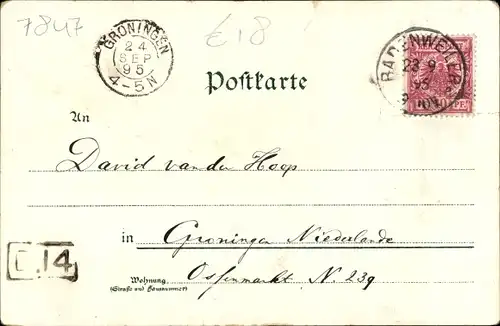 7847
€18
GRONINGEN
24
SEP
95
4-5N
BADENWEILER
23 9
95
10 PF
Postkarte
An
David van der Hoop
in Groningen Niederlande
D.14
Wohnung Ossenmarkt N. 239
(Straße und Hausnummer)